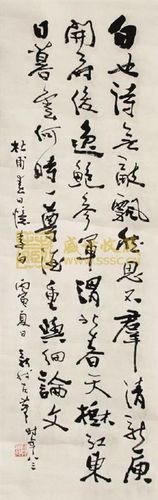 白也詩無敵飄然思不羣清新庾
開府俊逸鮑參軍渭北春天樹江東
日暮雲何時一尊酒重與細論文
杜甫春日憶李白 丙寅夏日 新我左筆 時年八三
盛世收藏